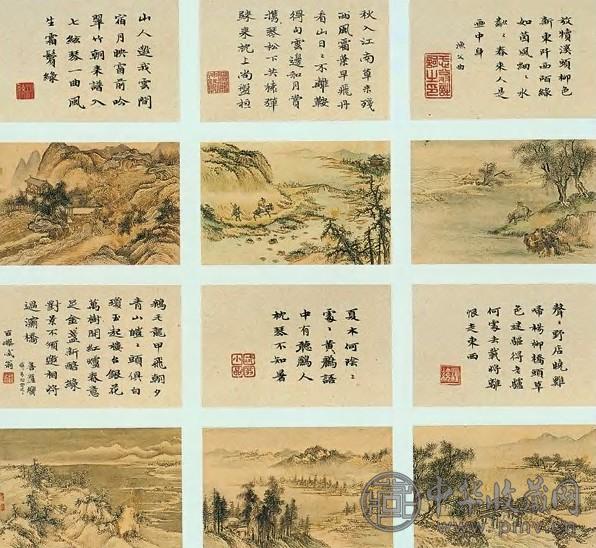 放犢溪頭柳色
新東阡西陌綠
如茵風細〻水
粼〻春來人是
畫中身
漁父曲
秋入江南草未殘
西風霜葉早飛丹
看山日〻不離鞍
得句雲邊和月賞
携琴松下共猿彈
歸來枕上尚盤桓
山人邀我雲間
宿月映窗前吟
翠竹朝來譜入
七絃琴一曲風
生霜鬢綠
聲〻野店曉雞
啼楊柳橋頭草
色迷驅得蹇驢
何處去載將離
恨走東西
夏木何陰〻
處〻黃鸝語
中有聽鸝人
枕琴不知暑
鵝毛龍甲飛朝夕
青山皚〻頭俱白
瓊玉起樓台銀花
萬樹開紅爐春意
足金盞新醅綠
對景不須邀相將
過灞橋
菩薩蠻
中华收藏网